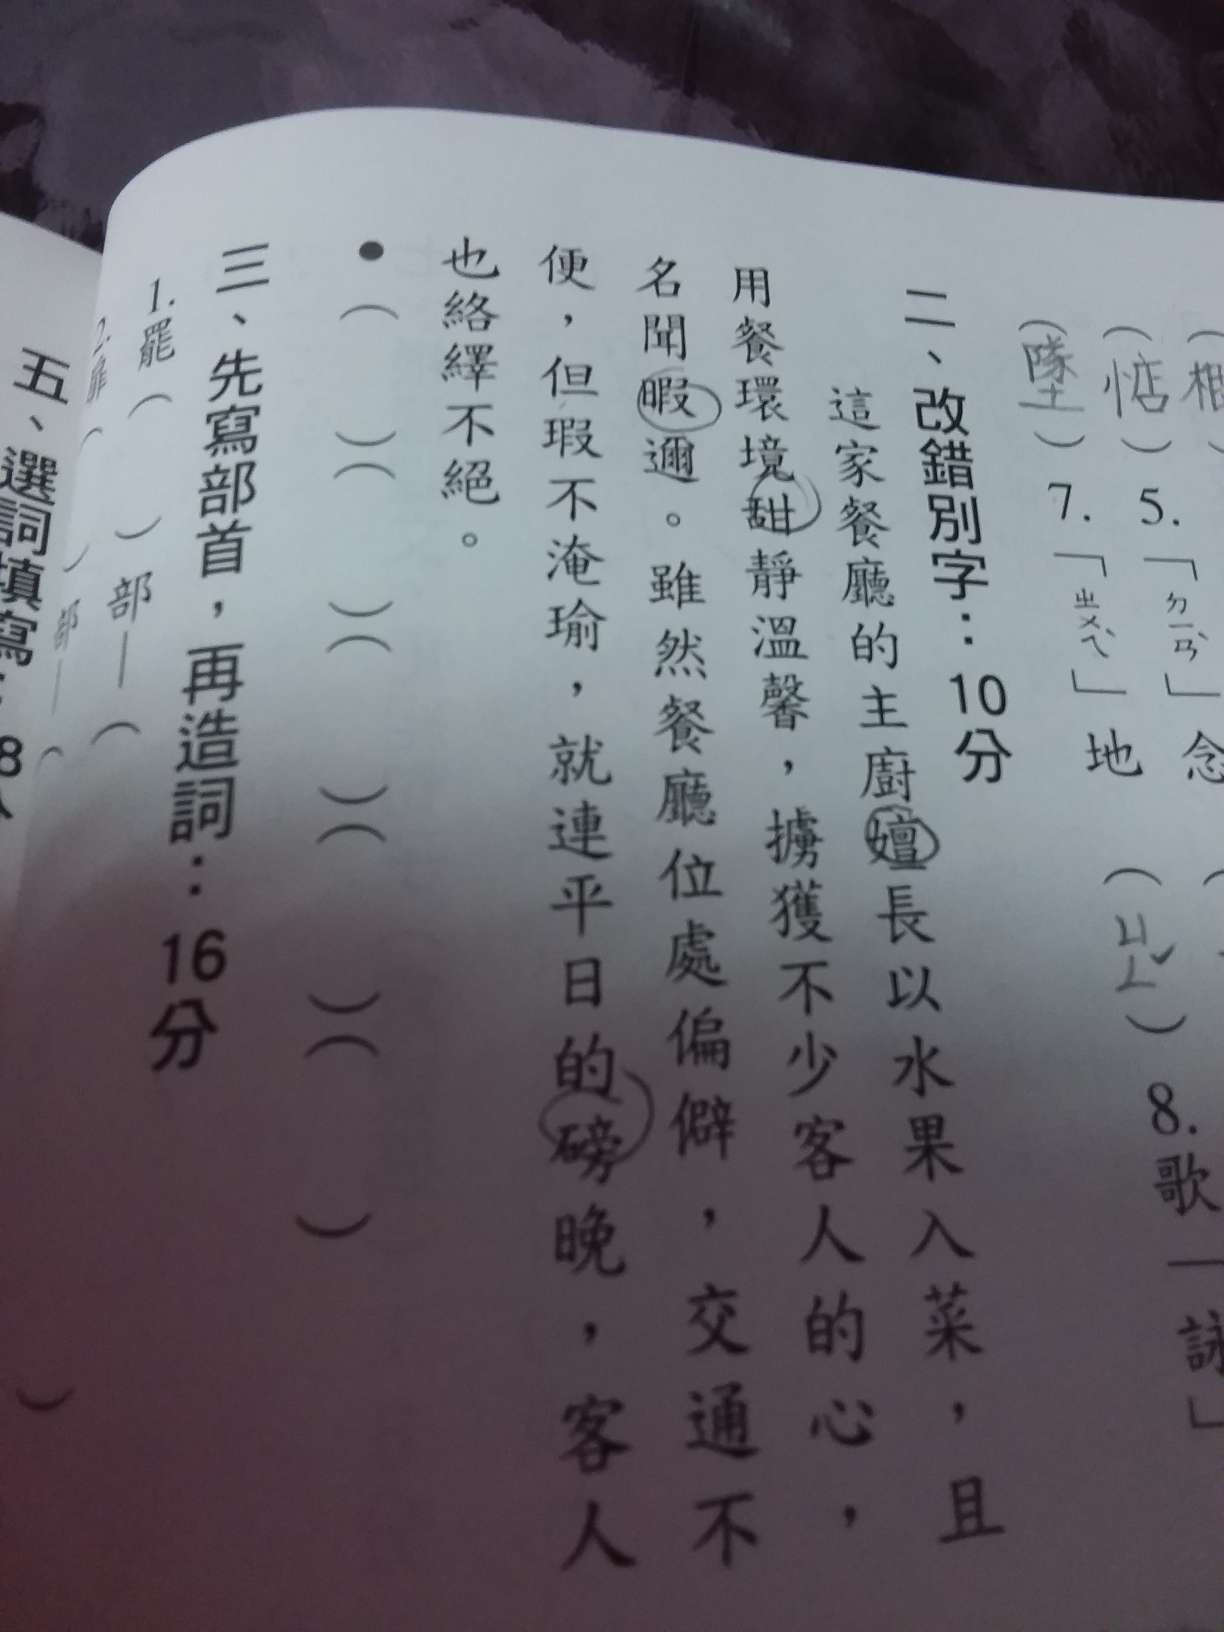 念
（惦）5.「ㄉㄧㄢˋ」
（墜）7.「ㄓㄨㄟˋ」地
8.歌「詠」
（ㄩㄥˇ）
二、改錯別字：10分
這家餐廳的主廚嬗長以水果入菜，且
用餐環境甜靜溫馨，擄獲不少客人的心，
名聞暇邇。雖然餐廳位處偏僻，交通不
便，但瑕不淹瑜，就連平日的磅晚，客人
也絡繹不絕。
●（　）（　）（　）（　）（　）
三、先寫部首，再造詞：16分
1.罷（　）部—（
2.（　）部—（
五、選詞填寫：8